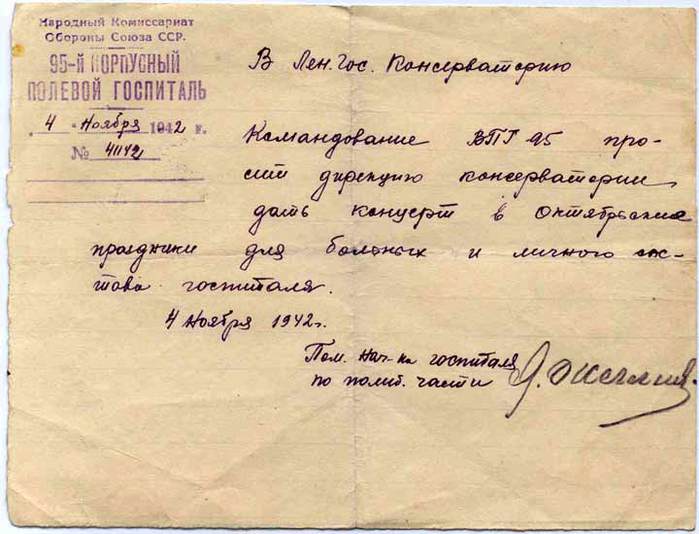 Народный Комиссариат
Обороны Союза ССР.
95-й КОРПУСНЫЙ
ПОЛЕВОЙ ГОСПИТАЛЬ
4 Ноября 1942 г.
№ 41142
В Лен. Гос. Консерваторию
Командование ВПГ 95 про-
сит дирекцию консерватории
дать концерт в Октябрьские
праздники для больных и личного сос-
тава госпиталя.
4 Ноября 1942 г.
Пом. Нач-ка госпиталя
по полит. части